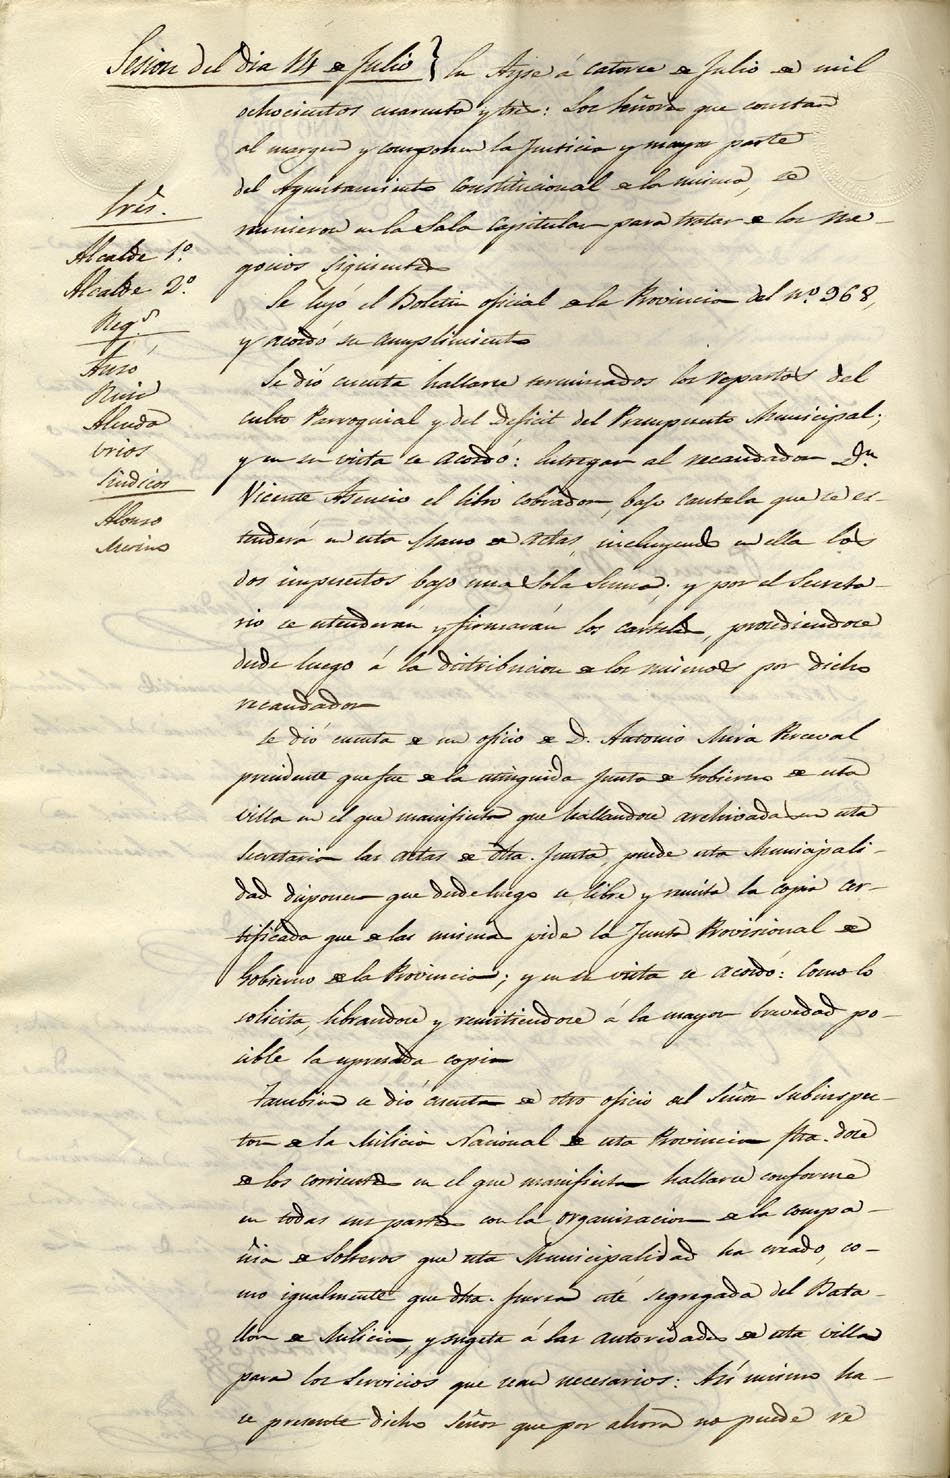 Sesion del dia 14 de Julio } En Aspe á catorce de Julio de mil
ochocientos cuarenta y tres: Los Señores que constan
al margen y componen la Justicia y mayor parte
del Ayuntamiento constitucional de la misma, se
reunieron en la Sala Capitular para tratar de los ne-
gocios siguientes
Sres.
Alcalde 1.º
Alcalde 2.º
Reg.s
Ruiz
Almda
brios
Sindicos
Alonso
Merino
Se leyó el Boletin oficial de la Provincia del n.º 968,
y acordó su cumplimiento
Se dió cuenta hallarse terminados los repartos del
culto Parroquial y del Deficit del Presupuesto Municipal;
y en su vista se acordó: Entregar al recaudador Dn
Vicente Asencio el libro cobrador, bajo cautela que se es-
tenderá en esta mano de actas, incluyendo en ella los
dos impuestos bajo una sola suma: y por el Secreta-
rio se estenderán y firmarán los carteles, procediendose
desde luego á la distribucion de los mismos por dicho
recaudador
Se dió cuenta de un oficio de D. Antonio Mira Perceval
presidente que fue de la estinguida Junta de Gobierno de esta
villa en el que manifiesta que hallandose archivadas en esta
secretaria las actas de dha. Junta, puede esta Municipali-
dad disponer que desde luego se libre y remita la copia cer-
tificada que de las mismas pide la Junta Provisional de
Gobierno de la Provincia; y en su vista se acordó: Como lo
solicita, librandose y remitiendose á la mayor brevedad po-
sible la espresada copia
Tambien se dió cuenta de otro oficio del Señor Subinspec-
tor de la Milicia Nacional de esta Provincia fha. doce
de los corrientes en el que manifiesta hallarse conforme
en todas sus partes con la organizacion de la compa-
ñia de Solteros que esta Municipalidad ha creado, co-
mo igualmente que dha. fuerza esté segregada del Bata-
llon de Milicia, y sugeta á las autoridades de esta villa
para los servicios que sean necesarios: Asi mismo ha-
ce presente dicho Señor que por ahora no puede re